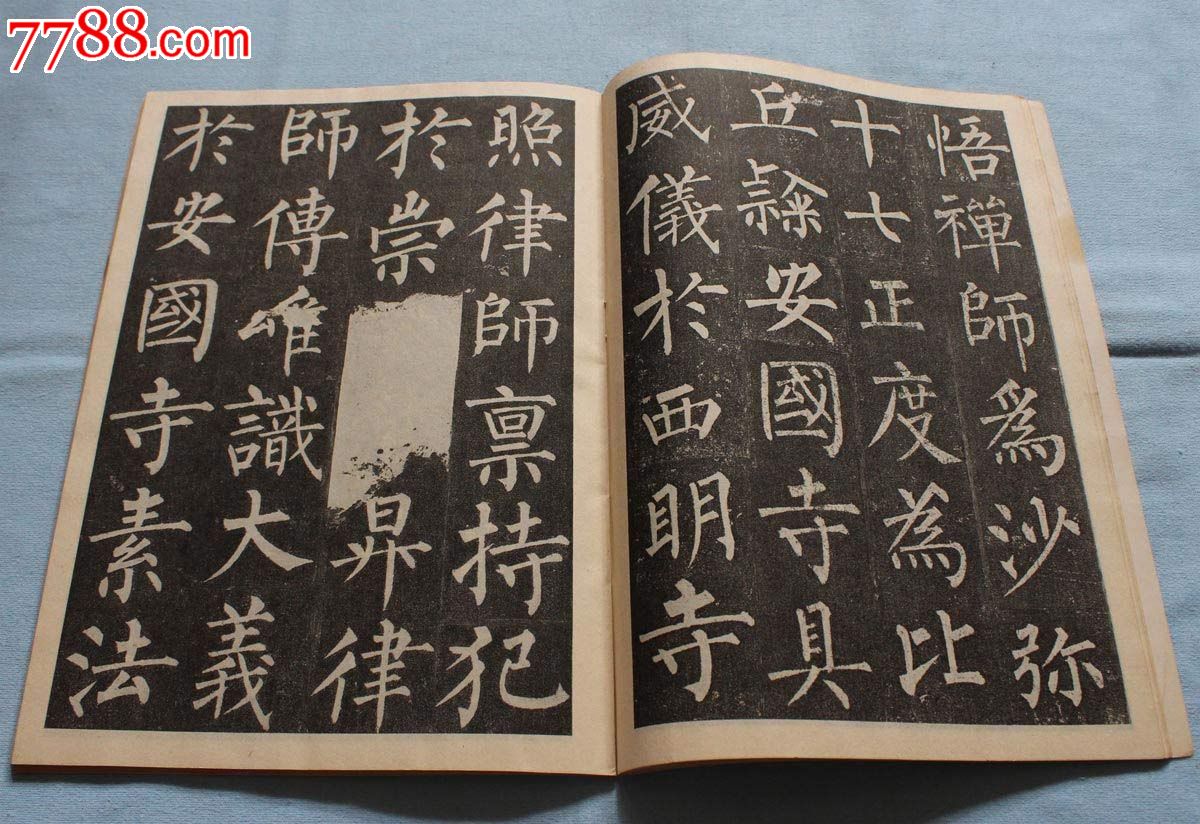 7788.com
悟禪師爲沙弥
十七正度為比
丘隸安國寺具
威儀於西明寺
照律師禀持犯
於崇昇律
師傳唯識大義
於安國寺素法